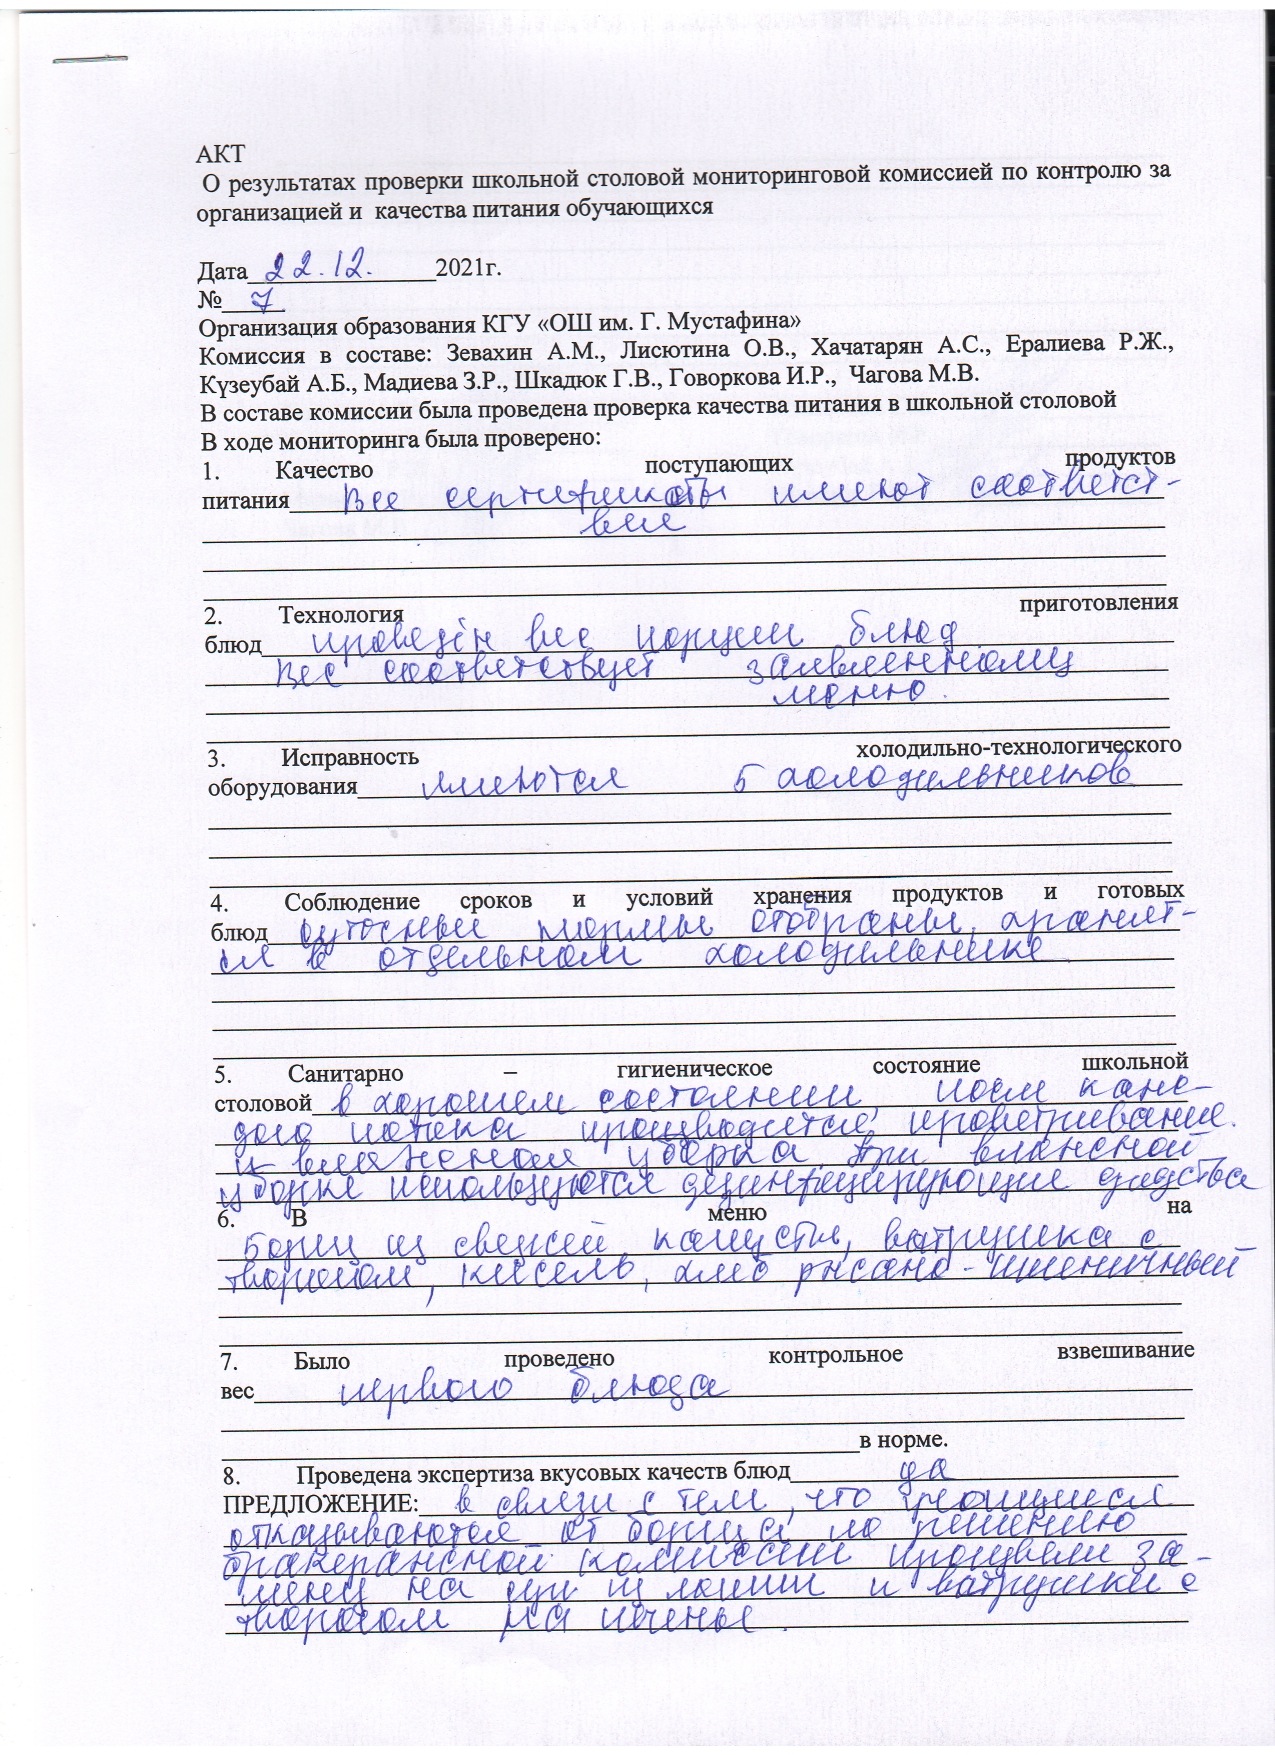 АКТ
О результатах проверки школьной столовой мониторинговой комиссией по контролю за
организацией и качества питания обучающихся
Дата 22.12. 2021г.
№ 7
Организация образования КГУ «ОШ им. Г. Мустафина»
Комиссия в составе: Зевахин А.М., Лисютина О.В., Хачатарян А.С., Ералиева Р.Ж.,
Күзеубай А.Б., Мадиева З.Р., Шкадюк Г.В., Говоркова И.Р., Чагова М.В.
В составе комиссии была проведена проверка качества питания в школьной столовой
В ходе мониторинга была проверено:
1. Качество поступающих продуктов
питания Все сертификаты имеют соответст-
вие
2. Технология приготовления
блюд проведён вес порции блюд.
Вес соответствует заявленному
меню.
3. Исправность холодильно-технологического
оборудования имеются 5 холодильников
4. Соблюдение сроков и условий хранения продуктов и готовых
блюд суточные пробы отобраны, хранят-
ся в отдельном холодильнике.
5. Санитарно – гигиеническое состояние школьной
столовой в хорошем состоянии, после каж-
дого потока производится проветривание
и влажная уборка. При влажной
уборке используются дезинфицирующие средства
6. В меню на
Борщ из свежей капусты, ватрушка с
творогом, кисель, хлеб ржано-пшеничный
7. Было проведено контрольное взвешивание
вес первого блюда
в норме.
8. Проведена экспертиза вкусовых качеств блюд да
ПРЕДЛОЖЕНИЕ: в связи с тем, что учащиеся
отказываются от борща по решению
бракеражной комиссии произвели за-
мену на суп из лапши и ватрушки с
творогом на печенье.